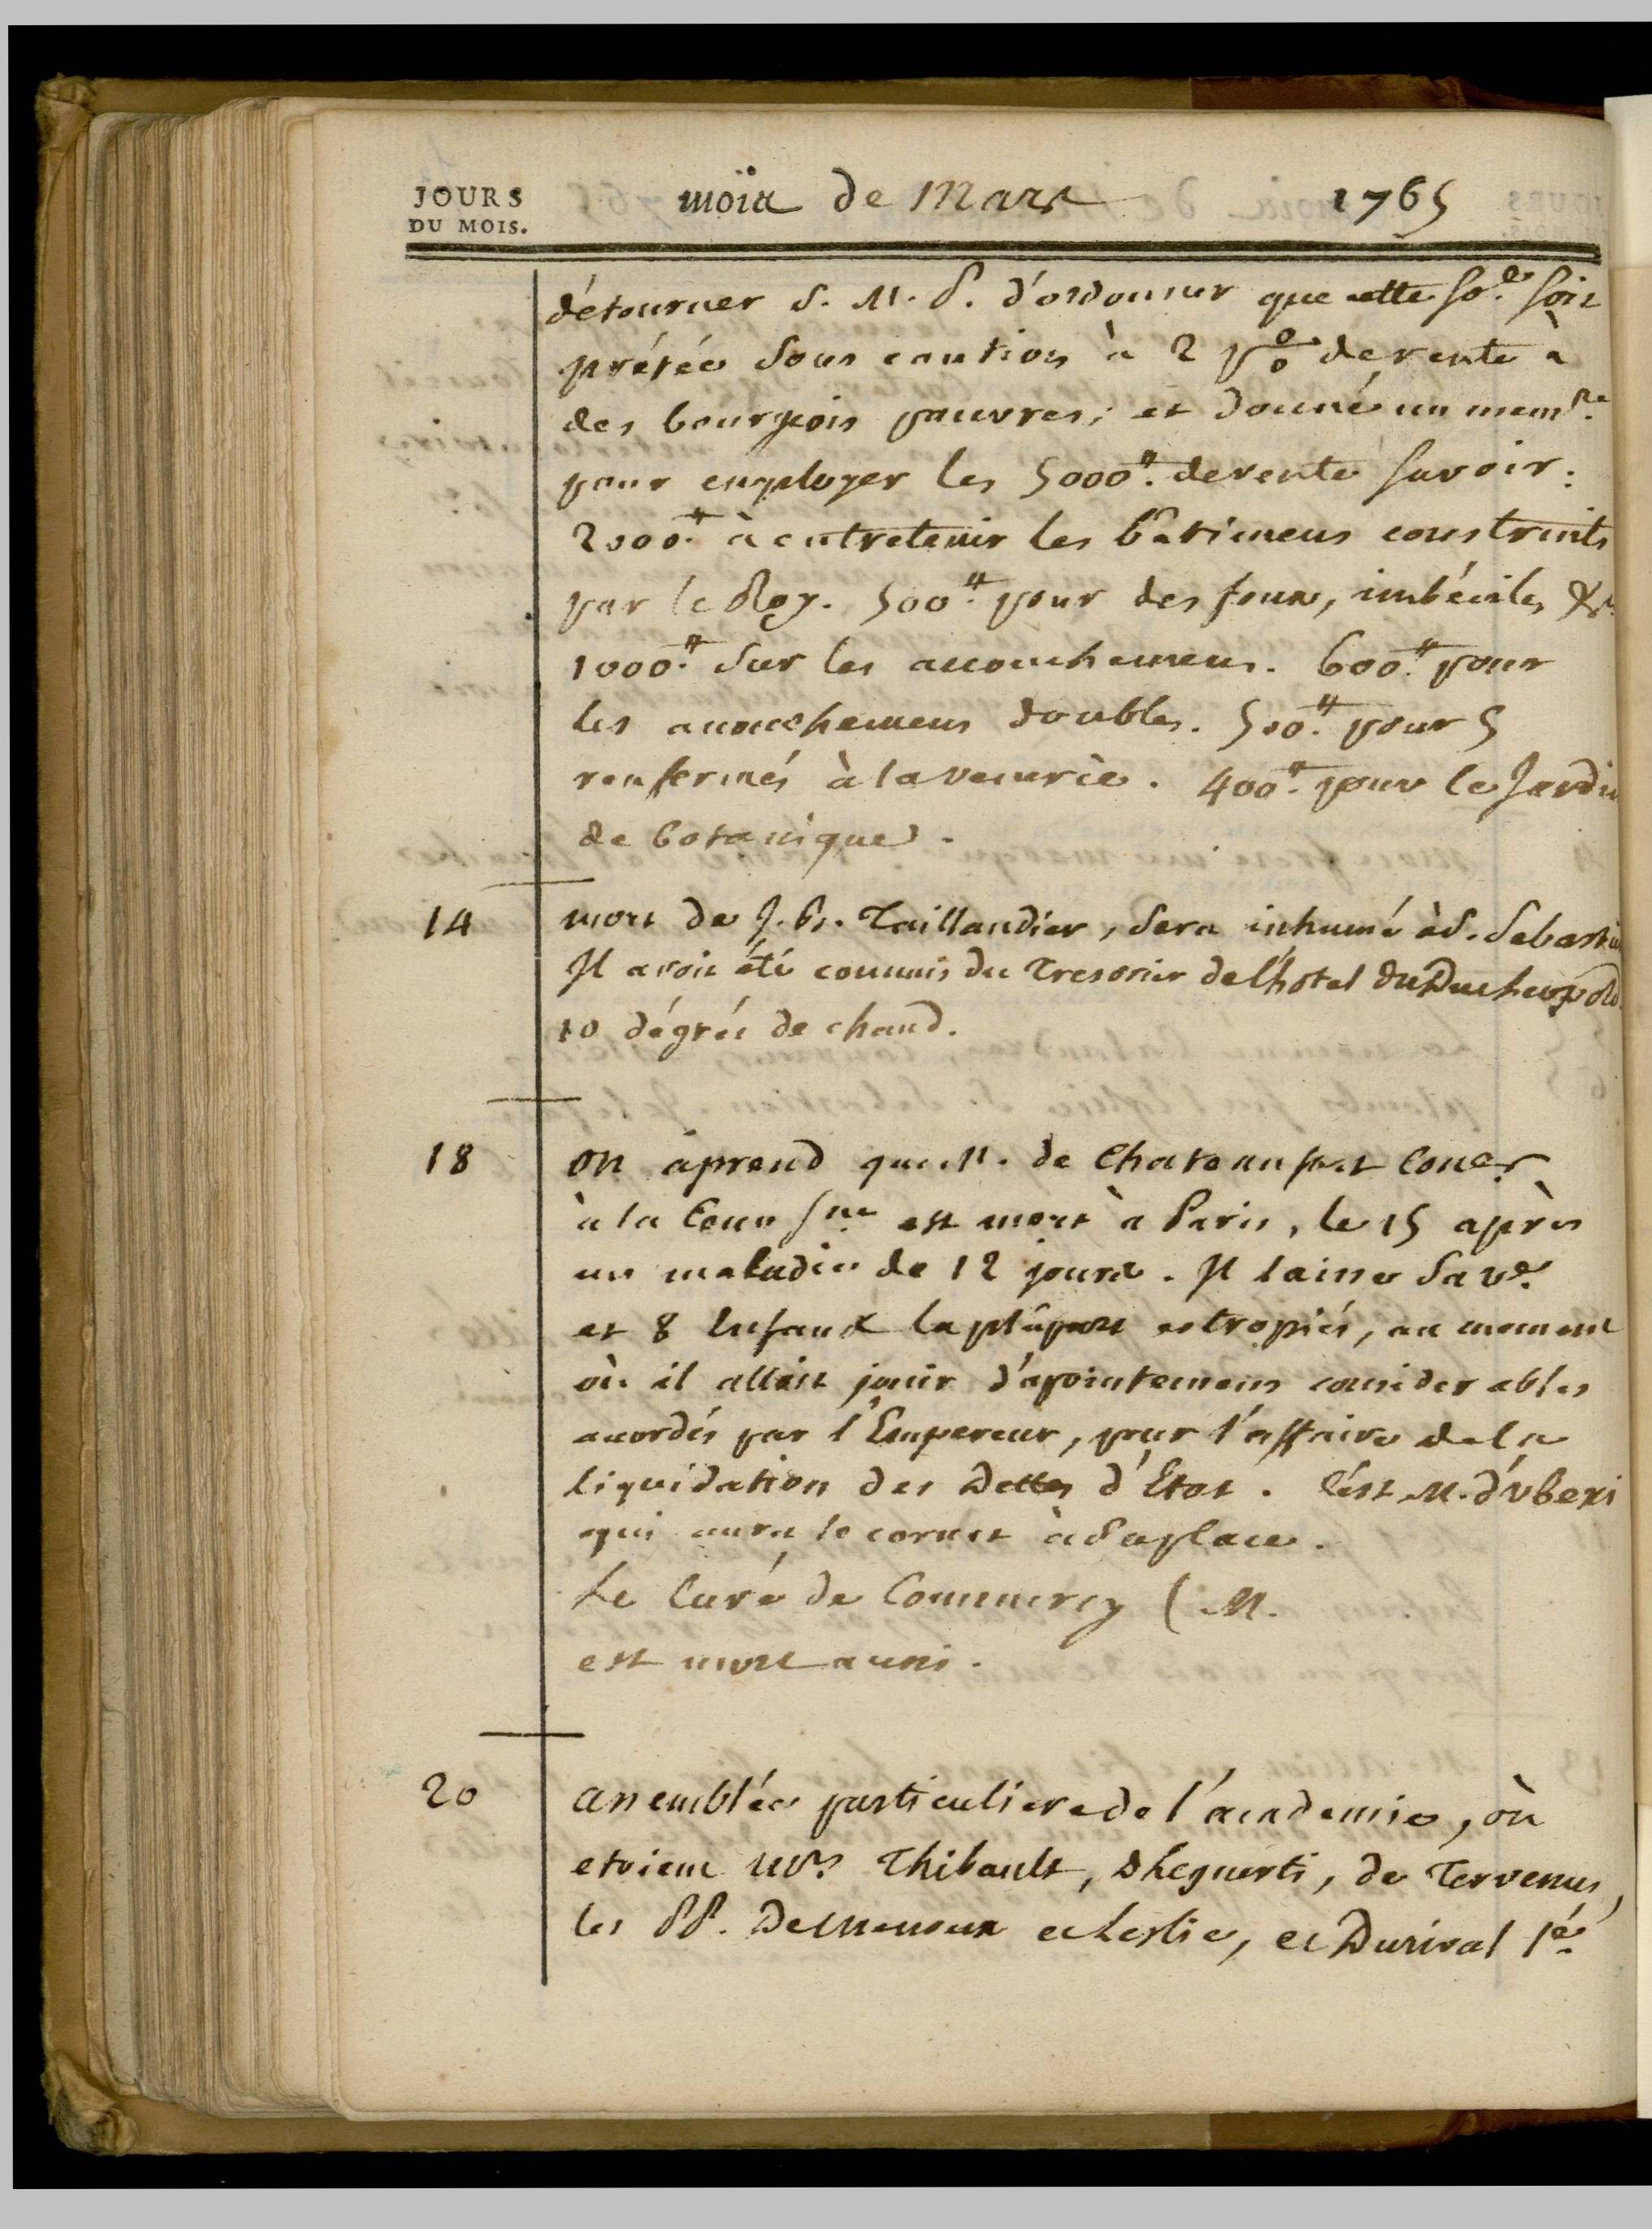 JOURS
DU MOIS.
moïs de Mars 1765
détourner S. M. P. d'ordonner que cette so.e soit
prétée sous caution à 2 p% de rente à
des bourgeois pauvres; et donné un mem.re
pour employer les 5000# de rente savoir:
2000# à entretenir les bâtimens construits
par le Roy. 500# pour des foux, imbéciles &a
1000# sur les acouchemens. 600# pour
les acouchemens doubles. 500# pour 5
renfermés à la venerie. 400# pour le Jardin
de botanique.
14 mort de J. Bs. Taillandier, sera inhumé à S. Sebastien
Il avoit été commis du Tresorier de l'hôtel du Duc Leopold.
10 dégrés de chaud.
18 on aprend que M. de Chateaufort Coner
à la Cour sne est mort à Paris, le 15 après
une maladie de 12 jours. Il laisse sa ve.
et 8 Enfans la plûpart estropiés, au moment
où il alloit jouir d'apointemens considerables
acordés par l'Empereur, pour l'affaire de la
liquidation des Dettes d'Etat. C'est M. d'Ubexi
qui aura le cornet à sa place.
Le Curé de Commercy (M.
est mort aussi.
20 assemblée particuliere de l'academie, où
etoient Mrs. Thibault, Sleguerti, de Tervenus,
les PP. Demenoux et Leslie, et Durival l'é.